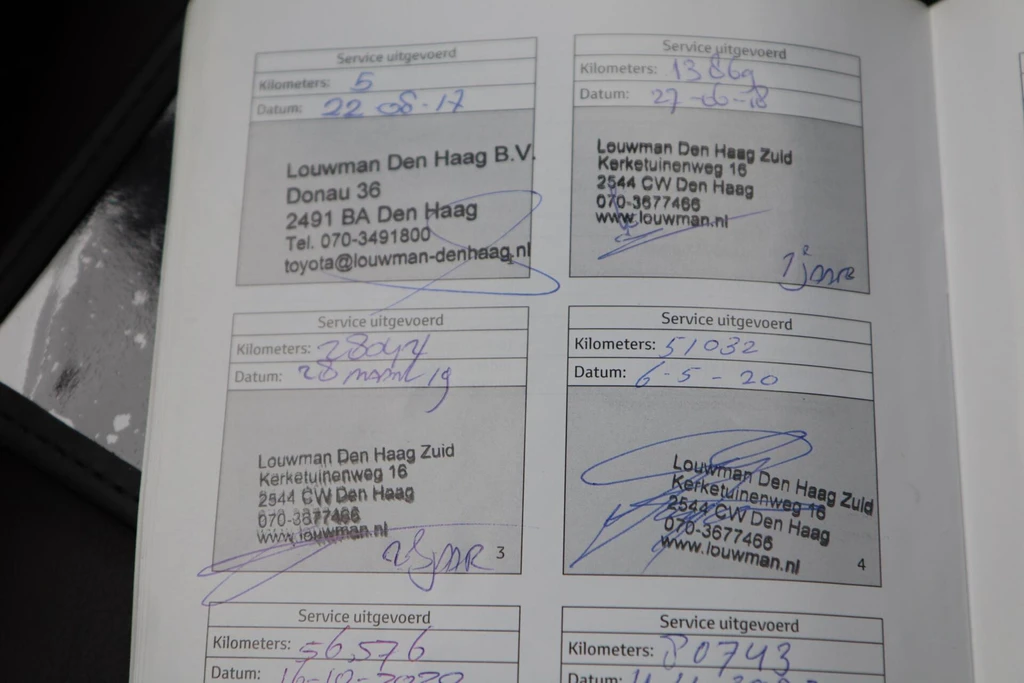 Service uitgevoerd
Kilometers: 5
Datum: 22-08-17
Louwman Den Haag B.V.
Donau 36
2491 BA Den Haag
Tel. 070-3491800
toyota@louwman-denhaag.nl
Service uitgevoerd
Kilometers: 13869
Datum: 27-06-18
Louwman Den Haag Zuid
Kerketuinenweg 16
2544 CW Den Haag
070-3677466
www.louwman.nl
1 jaar
Service uitgevoerd
Kilometers: 28044
Datum: 28 maart 19
Louwman Den Haag Zuid
Kerketuinenweg 16
2544 CW Den Haag
070-3677466
www.louwman.nl
jaar
3
Service uitgevoerd
Kilometers: 51032
Datum: 6-5-20
Louwman Den Haag Zuid
Kerketuinenweg 16
2544 CW Den Haag
070-3677466
www.louwman.nl
4
Service uitgevoerd
Kilometers: 56,576
Datum: 16-10-2020
Service uitgevoerd
Kilometers: 80743
Datum: